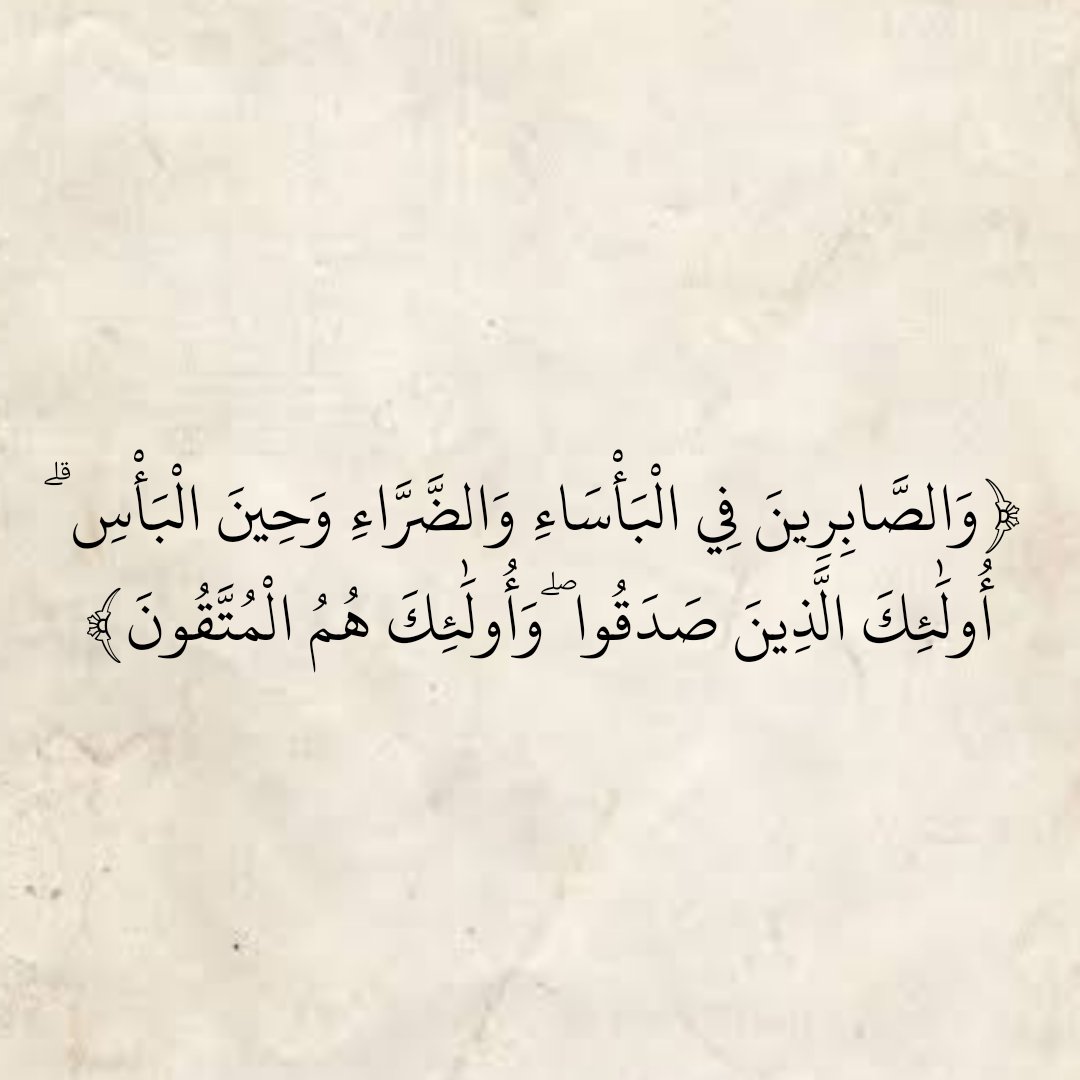 ﴿ وَالصَّابِرِينَ فِي الْبَأْسَاءِ وَالضَّرَّاءِ وَحِينَ الْبَأْسِ ۗ
أُولَٰئِكَ الَّذِينَ صَدَقُوا ۖ وَأُولَٰئِكَ هُمُ الْمُتَّقُونَ ﴾